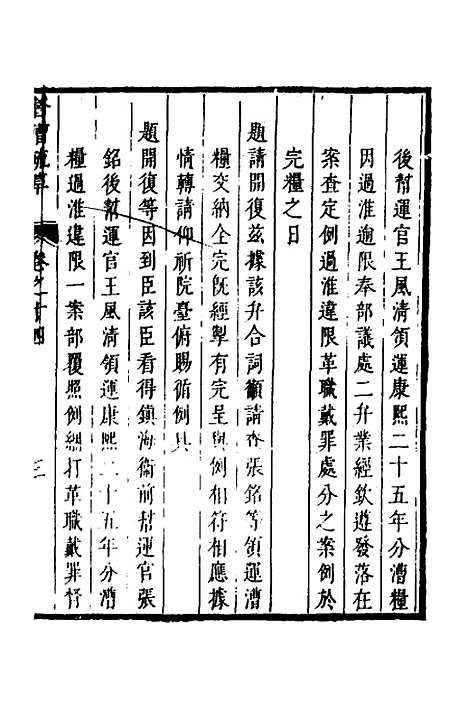 後幫運官王風清領運康熙二十五年分漕糧
因過淮逾限奉部議處二弁業經欽遵發落在
案查定例過淮違限革職戴罪處分之案例於
完糧之日
題請開復茲據該弁合詞籲請查張銘等領運漕
糧交納全完旣經掣有完呈與例相符相應據
情轉請仰祈院臺俯賜循例具
題開復等因到臣該臣看得鎮海衞前幫運官張
銘後幫運官王風清領運康熙二十五年分漕
糧過淮違限一案部覆照例綑打革職戴罪督
督漕疏草 卷之十四 三